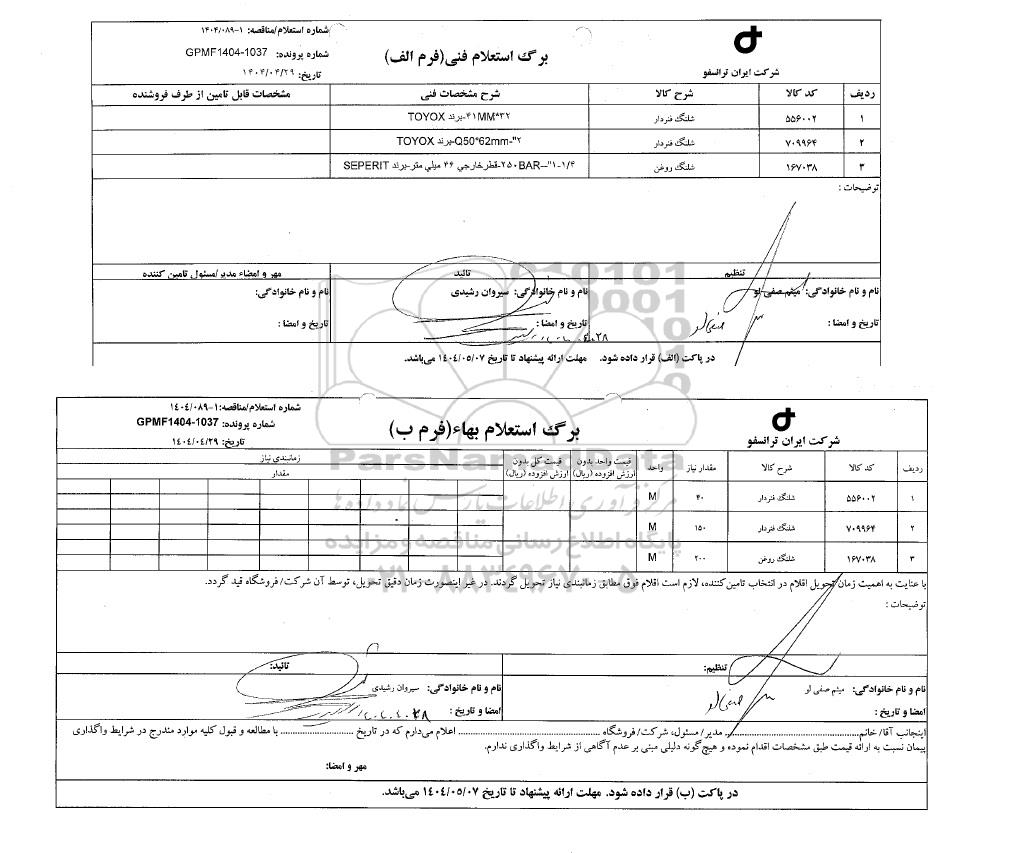 شماره استعلام/مناقصه: ۱-۱۴۰۴/۰۸۹
برگ استعلام فنی(فرم الف)
شماره پرونده: GPMF1404-1037
شرکت ایران ترانسفو
تاریخ: ۱۴۰۴/۰۴/۲۹
ردیف کد کالا شرح کالا شرح مشخصات فنی مشخصات قابل تامین از طرف فروشنده
۱ ۵۵۶۰۰۲ شلنگ فنردار ۳۲*۴۱MM-برند TOYOX
۲ ۷۰۹۹۶۴ شلنگ فنردار ۲"-Q50*62mm-برند TOYOX
۳ ۱۶۷۰۳۸ شلنگ روغن ۱-۱/۴"--۲۵۰BAR-قطرخارجي ۴۶ ميلي متر-برند SEPERIT
توضیحات :
تنظیم تائید مهر و امضاء مدیر/مسئول تامین کننده
نام و نام خانوادگی: میثم صفی لو نام و نام خانوادگی: سیروان رشیدی نام و نام خانوادگی:
تاریخ و امضا : تاریخ و امضا : تاریخ و امضا :
در پاکت (الف) قرار داده شود. مهلت ارائه پیشنهاد تا تاریخ ۱۴۰۴/۰۵/۰۷ می‌باشد.
شماره استعلام/مناقصه: ۱-۱۴۰۴/۰۸۹
شماره پرونده: GPMF1404-1037
برگ استعلام بهاء(فرم ب)
شرکت ایران ترانسفو
تاریخ: ۱۴۰۴/۰۴/۲۹
ردیف کد کالا شرح کالا مقدار نیاز واحد قیمت واحد بدون ارزش افزوده (ریال) قیمت کل بدون ارزش افزوده (ریال) زمانبندی نیاز
مقدار
۱ ۵۵۶۰۰۲ شلنگ فنردار ۴۰ M
۲ ۷۰۹۹۶۴ شلنگ فنردار ۱۵۰ M
۳ ۱۶۷۰۳۸ شلنگ روغن ۲۰۰ M
ParsNamadData
مرکز فرآوری اطلاعات پارس نماد داده ها
پایگاه اطلاع رسانی مناقصه و مزایده
۰۲۱-۸۸۳۴۹۶۷۰-۵
با عنایت به اهمیت زمان تحویل اقلام در انتخاب تامین‌کننده، لازم است اقلام فوق مطابق زمانبندی نیاز تحویل گردند. در غیر اینصورت زمان دقیق تحویل، توسط آن شرکت/ فروشگاه قید گردد.
توضیحات :
تنظیم: تائید:
نام و نام خانوادگی: میثم صفی لو نام و نام خانوادگی: سیروان رشیدی
امضا و تاریخ : امضا و تاریخ :
اینجانب آقا/ خانم مدیر/ مسئول، شرکت/ فروشگاه اعلام می‌دارم که در تاریخ با مطالعه و قبول کلیه موارد مندرج در شرایط واگذاری
پیمان نسبت به ارائه قیمت طبق مشخصات اقدام نموده و هیچ‌گونه دلیلی مبنی بر عدم آگاهی از شرایط واگذاری ندارم.
مهر و امضا:
در پاکت (ب) قرار داده شود. مهلت ارائه پیشنهاد تا تاریخ ۱۴۰۴/۰۵/۰۷ می‌باشد.